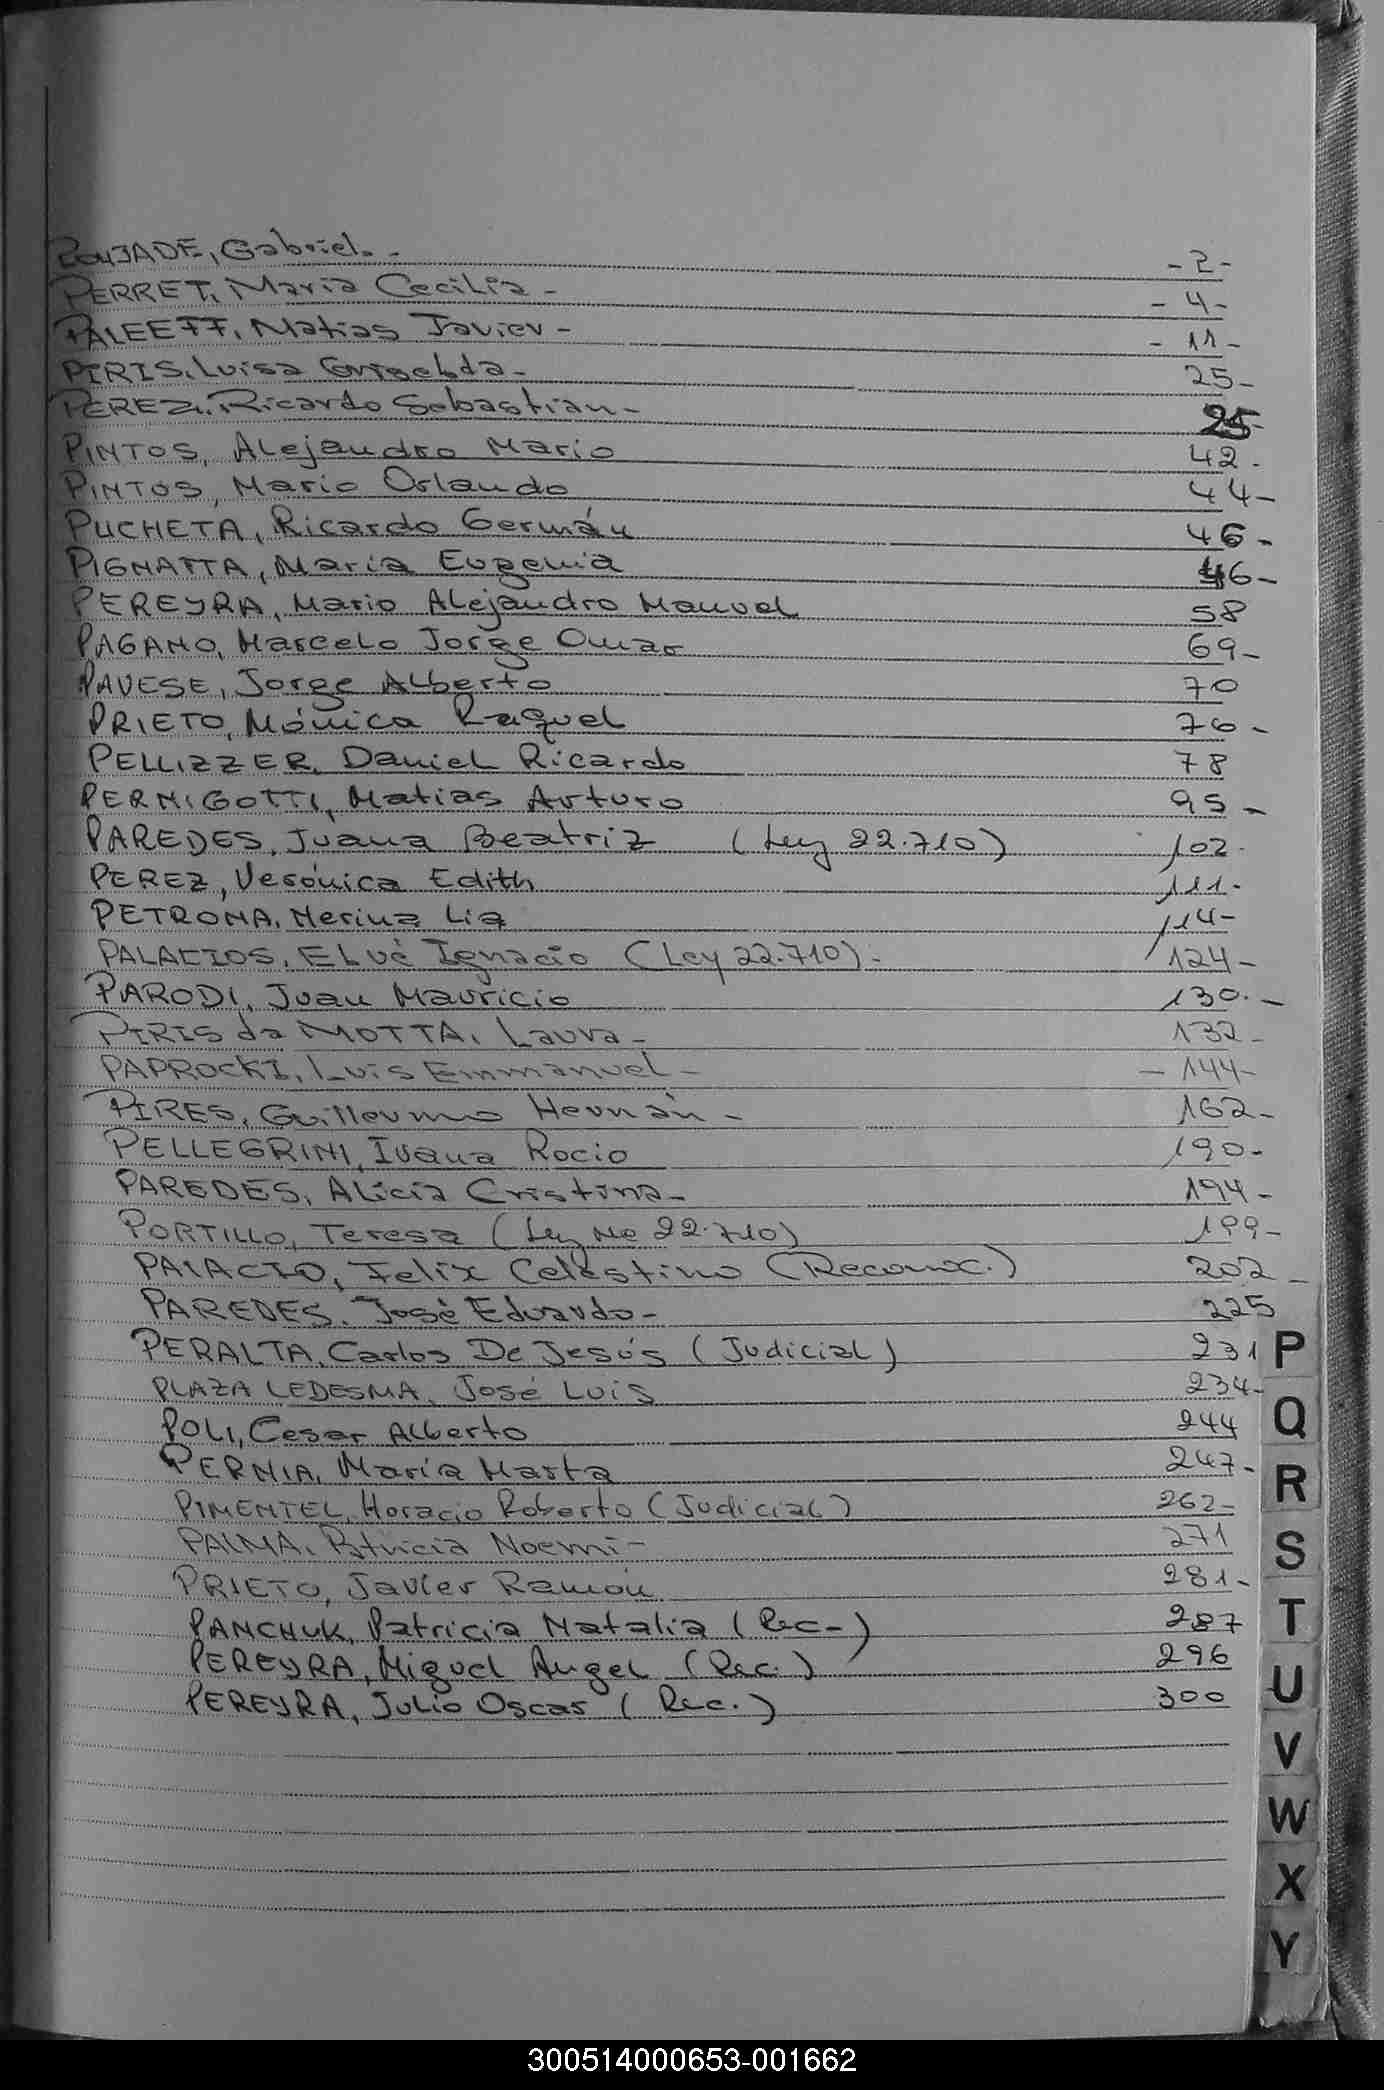 POUJADE, Gabriel. - - 2 -
PERRET, Maria Cecilia - - 4 -
PALEEFF, Matias Javier - - 11 -
PIRIS, Luisa Griselda - 25 -
PEREZ, Ricardo Sebastian - 25 -
PINTOS, Alejandro Mario 42 -
PINTOS, Mario Orlando 44 -
PUCHETA, Ricardo Germán 46 -
PIGNATTA, Maria Eugenia 46 -
PEREYRA, Mario Alejandro Manuel 58
PAGANO, Marcelo Jorge Omar 69 -
PAVESE, Jorge Alberto 70
PRIETO, Mónica Raquel 76 -
PELLIZZER, Daniel Ricardo 78
PERNIGOTTI, Matias Arturo 95 -
PAREDES, Juana Beatriz (Ley 22.710) 102 -
PEREZ, Verónica Edith 111 -
PETRONA, Lia 114 -
PALACIOS, Ignacio (Ley 22.710) - 124 -
PARODI, Juan Mauricio 130. -
PIRIS da MOTTA, Laura - 132 -
PAPROCKI, Luis Emmanuel - - 144 -
PIRES, Guillermo Hernán - 162 -
PELLEGRINI, Ivana Rocio 190 -
PAREDES, Alicia Cristina - 194 -
PORTILLO, Teresa (Ley No 22.710) 199 -
PALACIO, Felix Celestino (Reconoc.) 202 -
PAREDES, José Eduardo - 225
PERALTA, Carlos De Jesús (Judicial) 231
PLAZA LEDESMA, José Luis 234 -
POLI, Cesar Alberto 244
PERNIA, María Marta 247 -
PIMENTEL, Horacio Roberto (Judicial) 262 -
PALMA, Patricia Noemi - 271
PRIETO, Javier Ramón 281 -
PANCHUK, Patricia Natalia (Rec-) 287
PEREYRA, Miguel Angel (Rec.) 296
PEREYRA, Julio Oscar (Rec.) 300
P
Q
R
S
T
U
V
W
X
Y
300514000653-001662